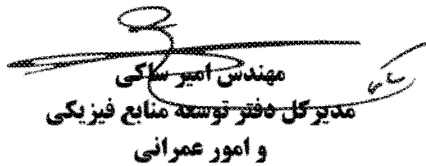 مهندس امیر ساکی
مدیرکل دفتر توسعه منابع فیزیکی
و امور عمرانی